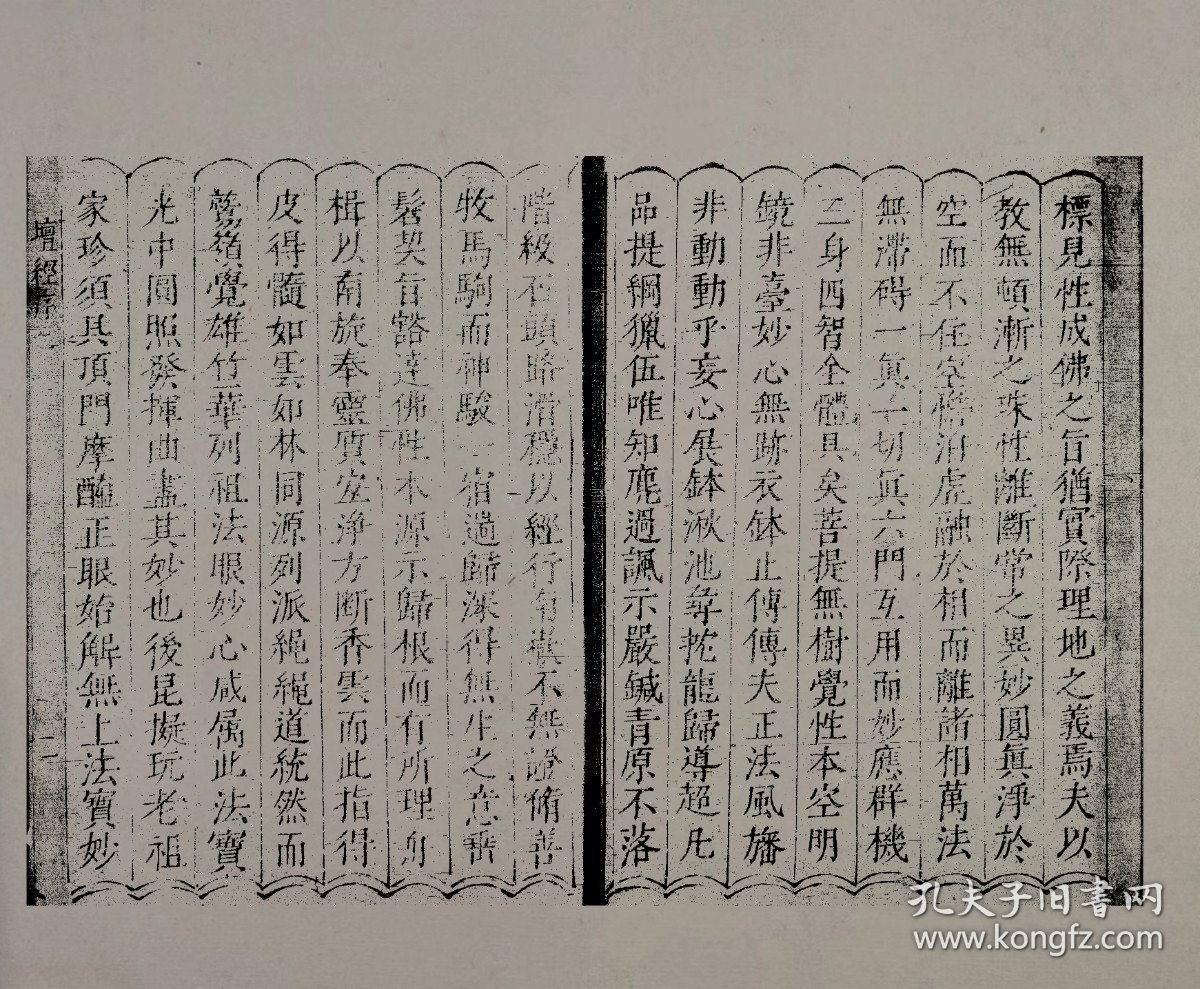 標見性成佛之旨猶實際理地之義焉夫以
教無頓漸之殊性離斷常之異妙圓眞淨於
空而不住空湛泊虛融於相而離諸相萬法
無滯碍一眞一切眞六門互用而妙應群機
三身四智全體具矣菩提無樹覺性本空明
鏡非臺妙心無跡衣鉢止傳傳夫正法風旛
非動動乎妄心展鉢湫池導龍歸導超凡
品提綱獵伍唯知麂過諷示嚴鍼青原不落
階級石頭路滑穩以經行無證脩善
牧馬駒而神駿一宿過歸深得無生之意
契旨豁達佛性本源示歸根而有所理
楫以南旋奉靈質安淨方斷香雲而此指得
皮得髓如雲如林同源列派繩繩道統然而
鷲嶺覺雄竹華列祖法眼妙心咸屬此法寶
光中圓照發揮曲盡其妙也後昆擬玩老祖
家珍須具頂門摩醯正眼始解無上法寶妙
壇經序
二
孔夫子旧书网
www.kongfz.com